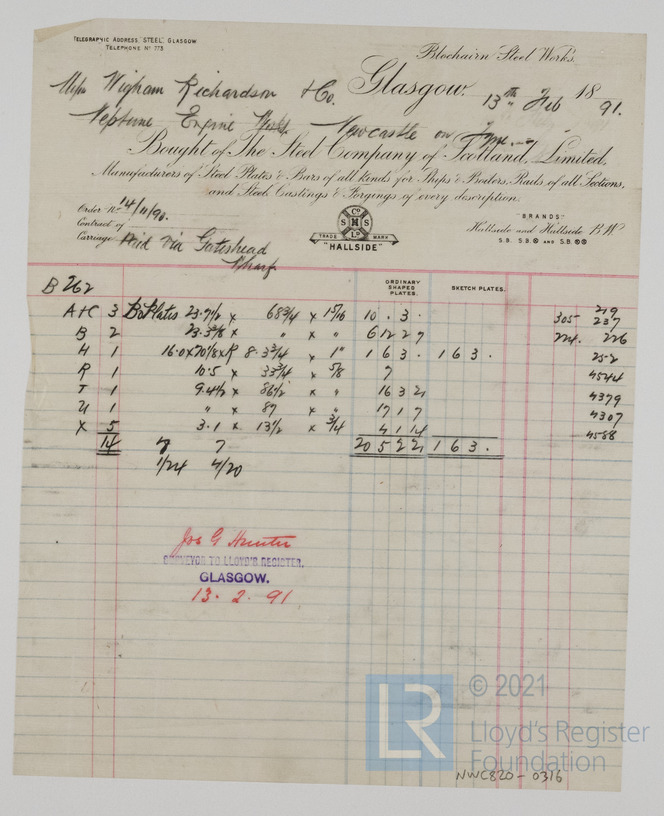 TELEGRAPHIC ADDRESS, "STEEL" GLASGOW
TELEPHONE No 773
Blochairn Steel Works.
Glasgow. 13th Feb 1891.
Messrs Wigham Richardson & Co.
Neptune Engine Works Newcastle on Tyne
Bought of The Steel Company of Scotland, Limited,
Manufacturers of Steel Plates & Bars of all kinds for Ships & Boilers, Rails of all Sections,
and Steel Castings & Forgings of every description.
Order No 14/11/90.
Contract of
Carriage Paid via Gateshead
Wharf
STEEL Co OF S Ld
TRADE MARK
"HALLSIDE"
"BRANDS"
Hallside and Hallside B W
S.B. S.B. AND S.B.
ORDINARY SHAPED PLATES. SKETCH PLATES.
B 262
A+C 3 Br Plates 23.7 1/2 x 68 3/4 x 15/16 10 . 3 . 305 219
237
B 2 23.3 5/8 x " x " 6 12 2 7 224. 226
H 1 16.0 x 70 1/8 x R 8.3 3/4 x 1" 1 6 3 . 1 6 3 . 252
R 1 10.5 x 33 3/4 x 5/8 7 4544
T 1 9.4 1/2 x 86 1/2 x " 16 3 21 4379
U 1 " x 87 x " 17 1 7 4307
X 5 3.1 x 13 1/2 x 3/4 4 1 14 4588
14 7 7 20 5 2 21 1 6 3 .
1/24 4/20
Jos G Hunter
SURVEYOR TO LLOYD'S REGISTER.
GLASGOW.
13. 2. 91
LR © 2021
Lloyd's Register
Foundation
NWC820-0316